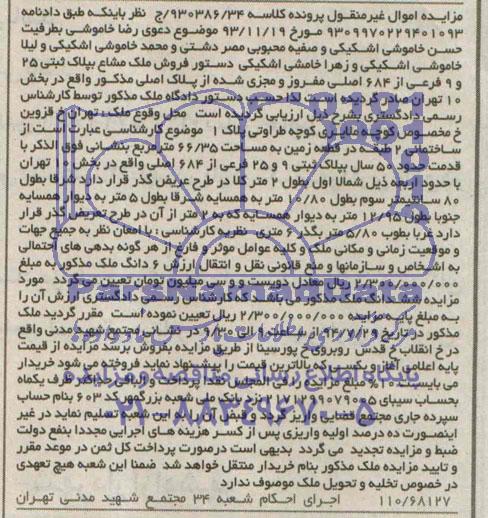 مزایده اموال غیرمنقول پرونده کلاسه ۹۳۰۳۸۶/۳۴/ج نظر باینکه طبق دادنامه
۹۳۰۹۹۷۰۲۲۹۴۰۱۰۹۳ مورخ ۹۳/۱۱/۱۹ موضوع دعوی رضا خاموشی بطرفیت
حسن خاموشی اشکیکی و صفیه محبوبی مصر دشتی و محمد خاموشی اشکیکی و لیلا
خاموشی اشکیکی و زهرا خامشی اشکیکی دستور فروش ملک مشاع بپلاک ثبتی ۲۵
و ۹ فرعی از ۶۸۴ اصلی مفروز و مجزی شده از پلاک اصلی مذکور واقع در بخش
۱۰ تهران صادر گردیده است لذا حسب دستور دادگاه ملک مذکور توسط کارشناس
رسمی دادگستری بشرح ذیل ارزیابی گردیده است محل وقوع ملک: تهران خ قزوین
خ مخصوص کوچه ملایری کوچه طراوتی پلاک ۱ موضوع کارشناسی عبارت است از
ساختمانی ۲ طبقه در قطعه زمین به مساحت ۶۶/۳۵ مترمربع بنشانی فوق الذکر با
قدمت حدود ۵۰ سال بپلاک ثبتی ۹ و ۲۵ فرعی از ۶۸۴ اصلی واقع در بخش ۱۰ تهران
با حدود اربعه ذیل شمالا اول بطول ۲ متر کلا در طرح عریض گذر قرار دارد شرقا بطول
۸۰ سانتیمتر سوم بطول ۱۰/۸۰ متر به همسایه شرقا بطول ۵ متر به دیوار همسایه
جنوبا بطول ۱۲/۹۵ متر به دیوار همسایه که به ۲ متر از آن در طرح تعریض گذر قرار
دارد غربا بطوب ۵/۸۰ متر بگذر ۶ متری نظریه کارشناسی: با امعان نظر به جمیع جهات
و موقعیت زمانی و مکانی ملک و کلیه عوامل موثر و فارغ از هر گونه بدهی های احتمالی
به اشخاص و سازمانها و منع قانونی نقل و انتقال ارزش ۶ دانگ ملک مذکور به مبلغ
۲/۳۰۰/۰۰۰/۰۰۰ ریال معادل دویست و و سی میلیون تومان تعیین می گردد مورد
مزایده ششدانگ ملک مذکور می باشد که کارشناس رسمی دادگستری ارزش آن را
به مبلغ پایه مزایده ۲/۳۰۰/۰۰۰/۰۰۰ ریال تعیین نموده است مقرر گردید ملک
مذکور در تاریخ ۹۴/۷/۱۲ از ساعت ۹ الی ۹/۳۰ در نشانی مجتمع شهید مدنی واقع
در خ انقلاب خ قدس روبروی خ پورسینا از طریق مزایده بفروش برسد مزایده از قیمت
پایه اعلامی آغاز و بکسی که بالاترین قیمت را پیشنهاد نماید فروخته می شود خریدار
می بایست ۱۰% مبلغ مزایده را فی المجلس نقدا پرداخت و الباقی حداکثر ظرف یکماه
نزد بانک ملی شعبه بزرگمهر کد ۶۰۳ بنام حساب
سپرده جاری مجتمع قضایی واریز گردد و قبض آن را به این شعبه تسلیم نماید در غیر
اینصورت ده درصد اولیه واریزی پس از کسر هزینه های اجرایی مجددا بنفع دولت
ضبط و مزایده تجدید می گردد بدیهی است درصورت پرداخت کل ثمن در موعد مقرر
و تایید مزایده ملک مذکور بنام خریدار منتقل خواهد شد ضمنا این شعبه هیچ تعهدی
در خصوص تخلیه و تحویل ملک موصوف ندارد
۱۱۰/۶۸۱۲۷ اجرای احکام شعبه ۳۴ مجتمع شهید مدنی تهران